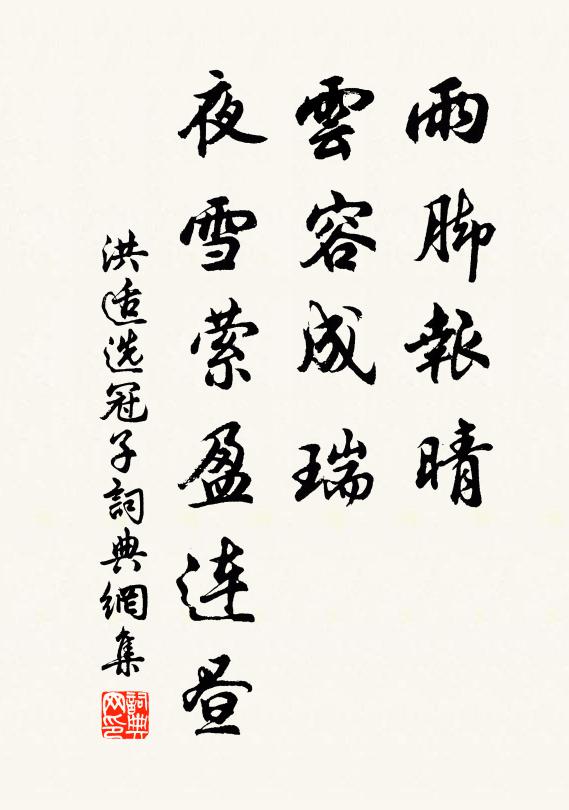 雨脚報晴
雲容成瑞
夜雪萦盈连昼
洪适选冠子詞典網集
詞典网印